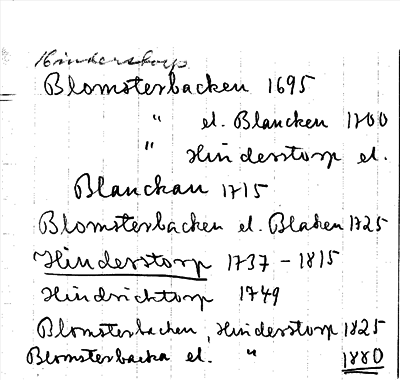 Hinderstorp
Blomsterbacken 1695
" el. Blancken 1700
" Hinderstorp el.
Blanckan 1715
Blomsterbacken el. Blaken 1725
Hinderstorp 1737-1815
Hindrichtorp 1749
Blomsterbacken, Hinderstorp 1825
Blomsterbacka el. " 1880